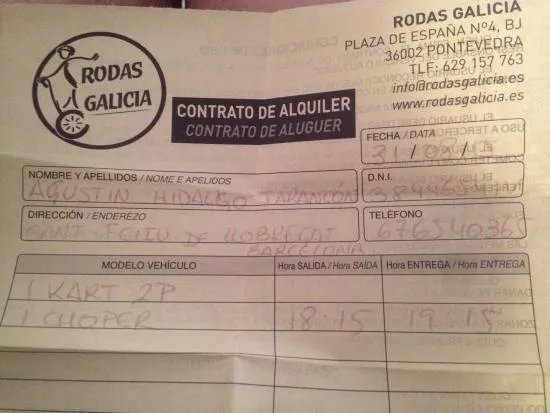 RODAS GALICIA
PLAZA DE ESPAÑA Nº4, BJ
36002 PONTEVEDRA
TLF: 629 157 763
info@rodasgalicia.es
www.rodasgalicia.es
RODAS
GALICIA
CONTRATO DE ALQUILER
CONTRATO DE ALUGUER
FECHA / DATA
31/03/
NOMBRE Y APELLIDOS / NOME E APELIDOS
D.N.I.
AGUSTIN HIDALGO TARANCÓN
DIRECCIÓN / ENDEREZO
TELÉFONO
SANT FELIU DE LLOBREGAT
BARCELONA
676540365
MODELO VEHÍCULO
Hora SALIDA / Hora SAÍDA
Hora ENTREGA / Hora ENTREGA
1 KART 2P
1 CHOPER 18:15 19:15